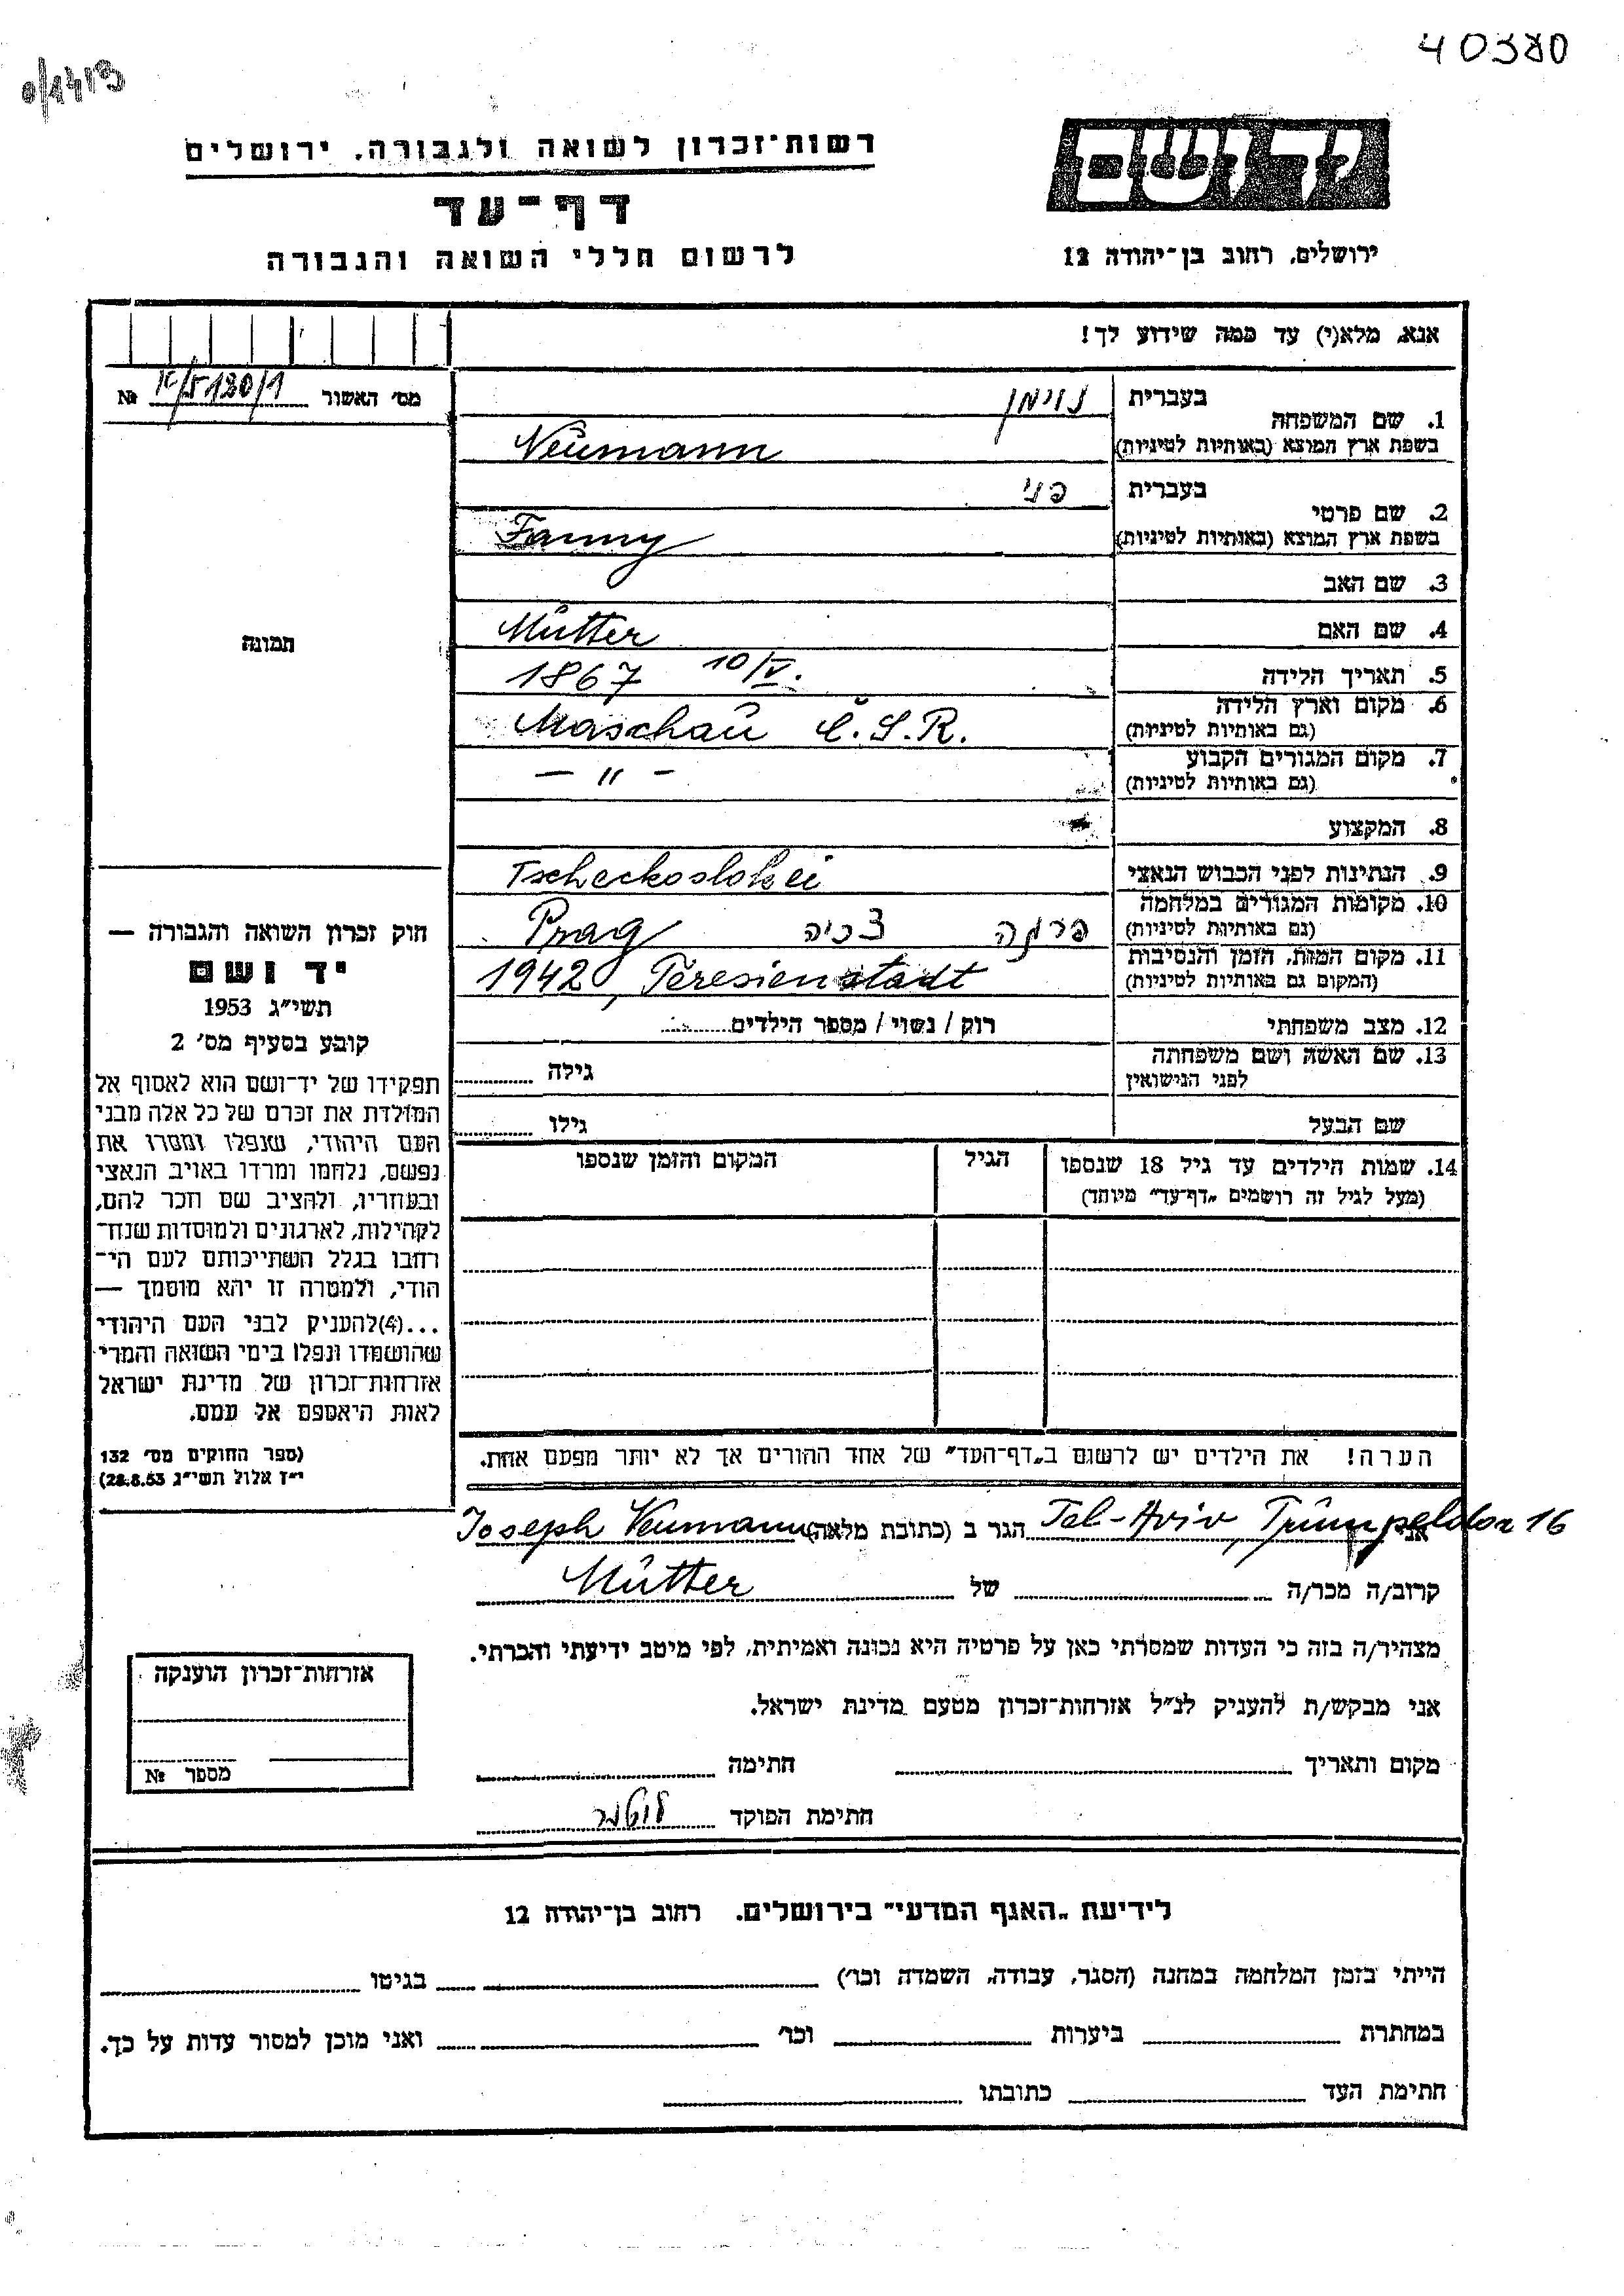 40380
0/1413
יד ושם
רשות־זכרון לשואה ולגבורה, ירושלים
דף־עד
לרשום חללי השואה והגבורה
ירושלים, רחוב בן־יהודה 12
אנא, מלא(י) עד כמה שידוע לך!
מס' האשור № 5130/1
1. שם המשפחה
בעברית נוימן
בשפת ארץ המוצא (באותיות לטיניות) Neumann
2. שם פרטי
בעברית פני
בשפת ארץ המוצא (באותיות לטיניות) Fanny
3. שם האב
4. שם האם Mutter
5. תאריך הלידה 1867 10/V.
6. מקום וארץ הלידה
(גם באותיות לטיניות) Maschau Č.S.R.
7. מקום המגורים הקבוע
(גם באותיות לטיניות) — " —
8. המקצוע
9. הנתינות לפני הכבוש הנאצי Tscheckoslokei
10. מקומות המגורים במלחמה
(גם באותיות לטיניות) Prag פרגה צ'כיה
11. מקום המות, הזמן והנסיבות
(המקום גם באותיות לטיניות) 1942, Teresienstadt
12. מצב משפחתי רוק / נשוי / מספר הילדים
13. שם האשה ושם משפחתה
לפני הנישואין גילה
שם הבעל גילו
14. שמות הילדים עד גיל 18 שנספו
(מעל לגיל זה רושמים „דף־עד" מיוחד)
הגיל
המקום והזמן שנספו
הערה! את הילדים יש לרשום ב„דף־העד" של אחד ההורים אך לא יותר מפעם אחת.
תמונה
חוק זכרון השואה והגבורה —
יד ושם
תשי"ג 1953
קובע בסעיף מס' 2
תפקידו של יד־ושם הוא לאסוף אל
המולדת את זכרם של כל אלה מבני
העם היהודי, שנפלו ומסרו את
נפשם, נלחמו ומרדו באויב הנאצי
ובעוזריו, ולהציב שם וזכר להם,
לקהילות, לארגונים ולמוסדות שנח־
רבו בגלל השתייכותם לעם הי־
הודי, ולמטרה זו יהא מוסמך —
...(4)להעניק לבני העם היהודי
שהושמדו ונפלו בימי השואה והמרי
אזרחות־זכרון של מדינת ישראל
לאות היאספם אל עמם.
(ספר החוקים מס' 132
י"ז אלול תשי"ג 28.8.53)
אני Joseph Neumann הגר ב (כתובת מלאה) Tel-Aviv, Trumpeldor 16
קרוב/ה מכר/ה של Mutter
מצהיר/ה בזה כי העדות שמסרתי כאן על פרטיה היא נכונה ואמיתית, לפי מיטב ידיעתי והכרתי.
אני מבקש/ת להעניק לנ"ל אזרחות־זכרון מטעם מדינת ישראל.
מקום ותאריך חתימה
חתימת הפוקד
אזרחות־זכרון הוענקה
מספר №
לידיעת „האגף המדעי" בירושלים. רחוב בן־יהודה 12
הייתי בזמן המלחמה במחנה (הסגר, עבודה, השמדה וכו') בגיטו
במחתרת ביערות וכו' ואני מוכן למסור עדות על כך.
חתימת העד כתובתו